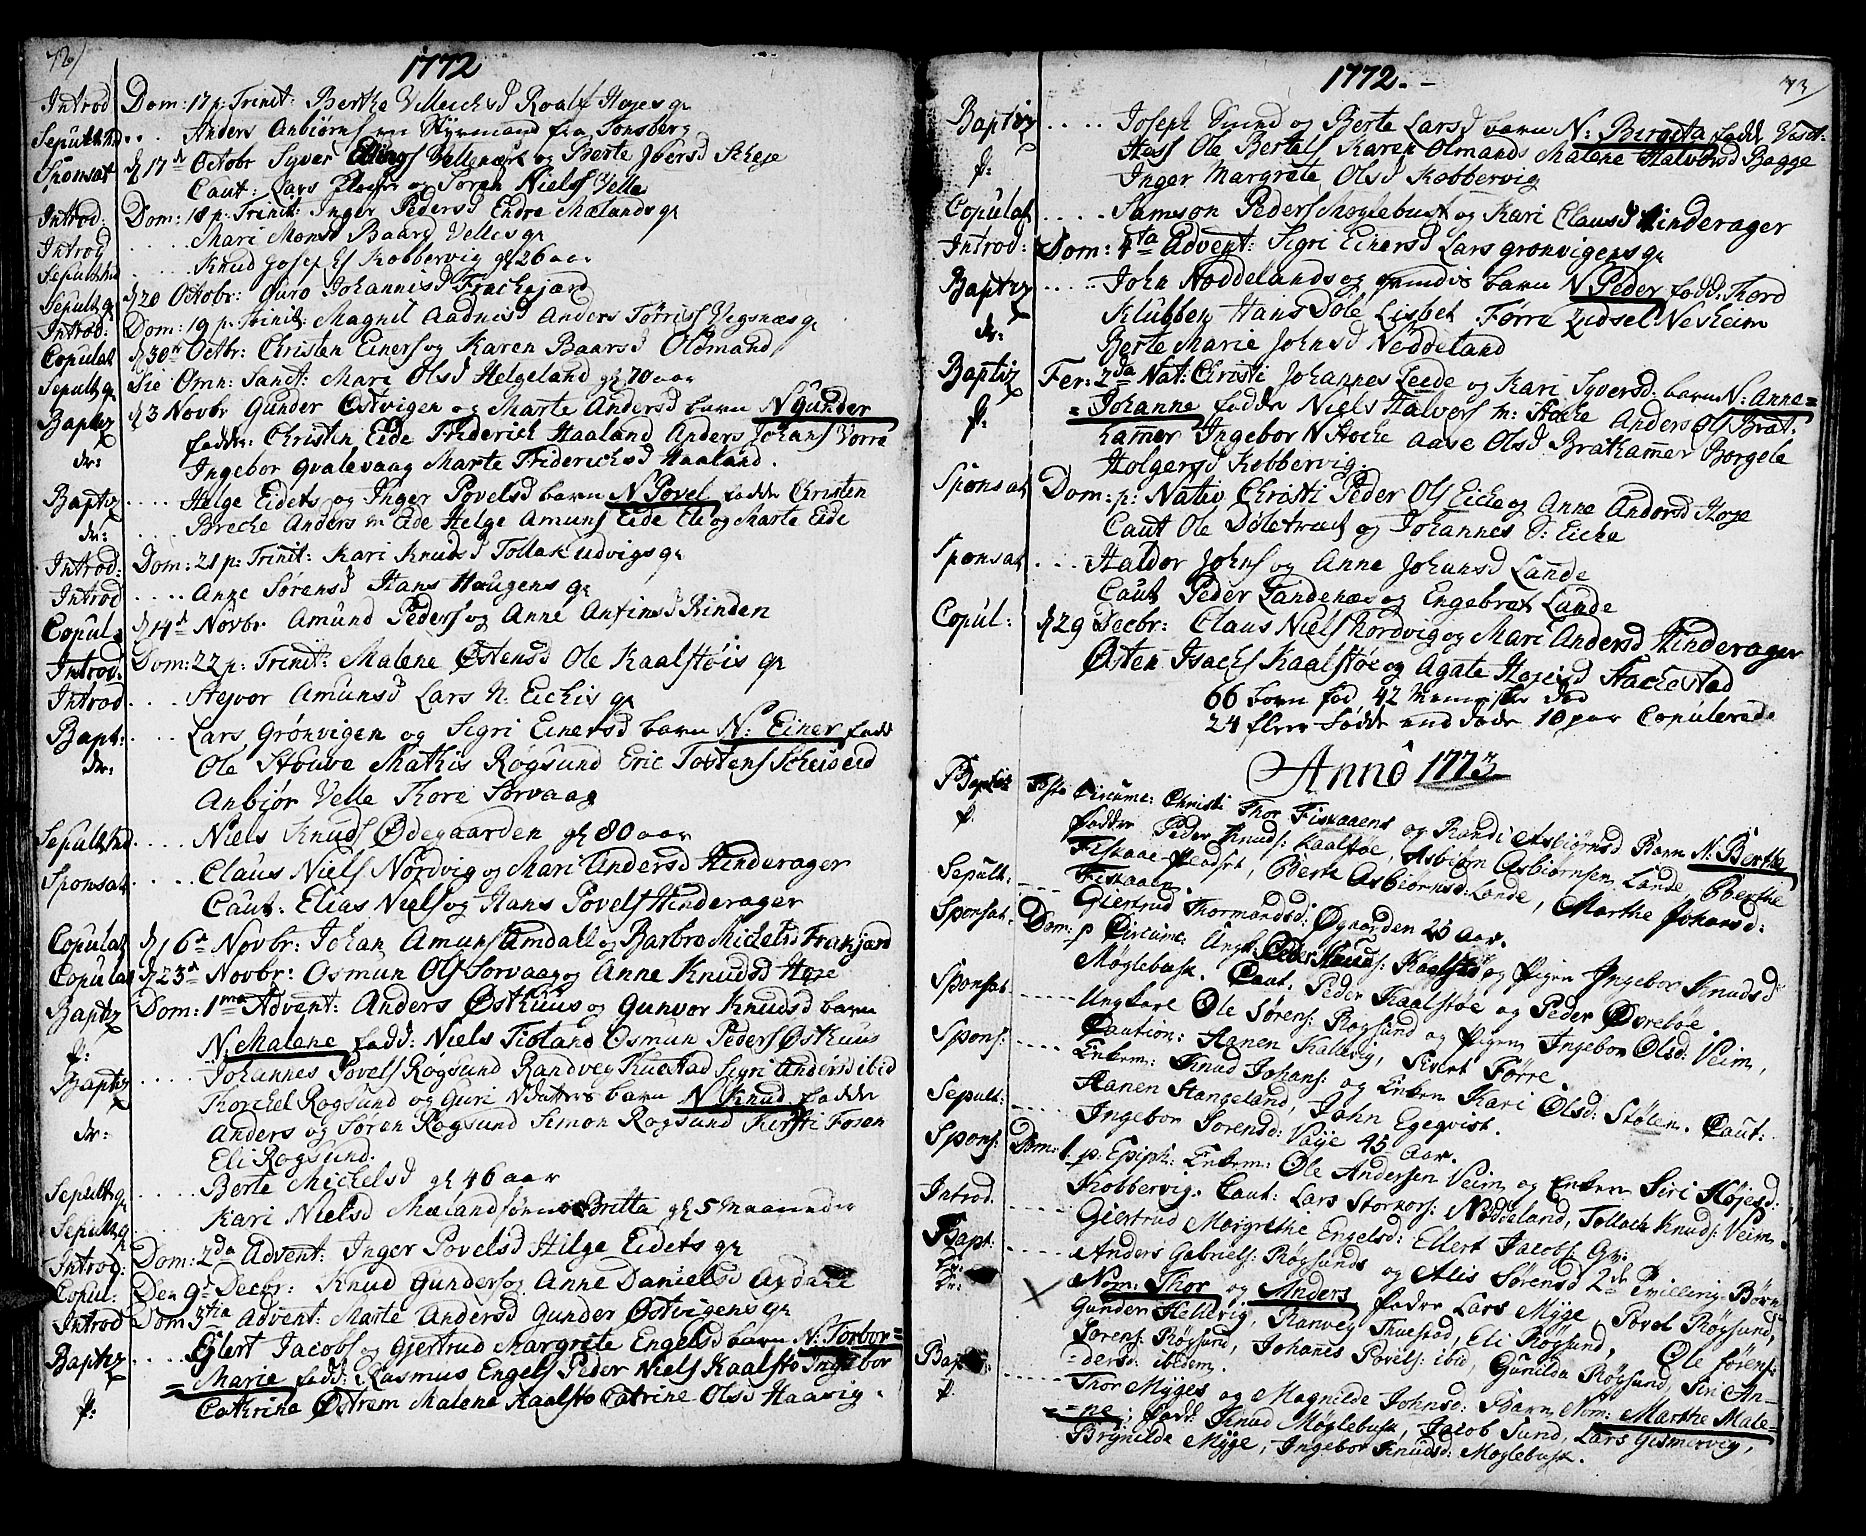 72)
1772
Introd Dom: 17 p: Trinit: Berthe Villeichsd Roalf Hojes qv
Sepult. Md .. Anders Anbiørns en Styrmand fra Tonsberg
Sponsat d 17d Octobr Syver Ellings Vellenært og Berte Iversd Scheje
Caut: Lars og Søren Niels Velle
Introd: Dom: 18 p. Trinit: Inger Pedersd Endre Mælands qv
Introd ..... Mari Monsd Baard Velles qv
Sepult. Md ..... Knud Josephs Kobbervig gl 26 aar
Sepult. q. d 20 Octobr: Guro Johannisd Frechejard
Introd: Dom: 19 p. Trinit: Magnil Aadnisd Anders Tørris Vigsnæs qv
Copulat d 30d Octbr: Christen Einers og Karen Baarsd Oldmand
Sepult q. Die Omn: Sanct: Mari Olsd Helgeland gl 70 aar
Baptiz d 3 Novbr Gunder Østvigen og Marte Andersd barn N Gunder
dr: fadd: Christen Eide Friderich Haaland Anders Johans Vorre
Ingebor Qvalevaag Marte Friderichsd Haaland.
Baptiz .... Helge Eidets og Inger Povelsd barn N Povel fadd Christen
dr: Breche Anders m Eide Helge Amuns Eide Eli og Marte Eide
Introd: Dom: 21 p: Trinit: Kari Knudsd Tollak udvigs qv
Introd .... Anne Sørensd Hans Haugens qv
Copul. d 14d Novbr Amund Peders og Anne Anfinsd Rinden
Introd: Dom: 22 p: Trinit: Malene Østensd Ole Kaalstøis qv
Introd .... Hejvor Amunsd Lars N. Eichis qv
Bapt: .... Lars Grønvigen og Sigri Einersd barn N: Einer fadd
dr: Ole Stouve Mathis Røgsund Eric Tostens
Anbiør Velle Thore Sørvaag
Sepult. Md .... Niels Knuds Ødegaarden gl 80 aar
Sponsat .... Claus Niels Nordvig og Mari Andersd Hinderager
Caut: Elias Niels og Hans Povels Hinderager
Copulat d 16d Novbr: Johan Amuns Amdall og Barbro Michelsd Frekjard
Copulat d 23d Novbr: Osmun Ols Sørvaag og Anne Knudsd Hoje
Baptiz Dom: 1ma Advent: Anders Østhuus og Gunvor Knudsd barn
p: N. Malene fadd: Niels Fioland Osmun Peders Østhuus
Johannes Povels Røgsund Randveg Thuestad Sigri Andersd ibid
Baptiz .... Thorchel Røgsund og Guri N datters barn N Knud fadde
dr: Anders og Søren Røgsund Simon Røgsund Kirsti Foren
Eli Røgsund.
Sepult q .... Berte Michelsd gl 46 aar
Sepult q .... Kari Nielsd Mæland Britta gl 5 Maaneder
Introd: Dom: 2da Advent: Inger Povelsd Hilge Eidets qv
Copul: Den 9d Decbr: Knud Gunders og Anne Danielsd
Introd Dom 3tia Advent: Marte Andersd Gunder Østvigens qv
Baptiz .... Ejlert Jacobs og Gjertrud Margrete Engelsd barn N: Torbor=
p: =Marie fadd: Rasmus Engels Peder Niels Kaalstø Ingebor
Cathrina Østrem Malene Kaalstø Catrine Olsd Haavig.
73)
1772.-
Baptiz ..... Joseph Sund og Berte Larsd barn N: Bergeta fadd
p: Hass Ole Bertels Karen Olmands Malene Halvorsd Bagge
Inger Margrete Olsd Kobbervig
Copulat ..... Samson Peders Møglebust og Kari Clausd Hinderager
Introd: Dom: 4ta Advent: Sigri Einersd Lars Grønvigens qv
Baptiz ..... John Nøddelands og barn N Peder fadd: Thord
dr: Klubben Hans Døle Lisbet Førre Zidsel Nesheim
Berte Marie Johnsd Nøddeland
Baptiz Fer: 2da Nat: Christi Johannes Leede og Kari Syversd. barn N: Anne=
p: =Johanne fadde Niels Halvers m: Stocke Anders Ols Brat.
kamer Ingebor N Stocke Aase Olsd Bratkamer Borgele
Holgersd Kobbervig.
Sponsat Dom: p: Nativ Christi Peder Ols Eiche og Anne Andersd Hoje
Caut Ole Døletract og Johannes S: Eiche
Sponsat ... Haldor Johns og Anne Johansd Lande
Caut Peder Landenæs og Engebret Lande
Copul: d 29 Decbr: Claus Niels Nordvig og Mari Andersd Hinderager
Østen Isachs Kaalstøe og Agate Hojesd Stachestad
66 born fød 42 mennisker død
24 flere fødde end døde 10 par Copulerede
Anno 1773
Baptiz Festo Circumc: Christi Thor Fiskaaens og Randi Asbiørnsd Barn N: Berthe
p. fadder Peder Knuds: Kaalstøe, Asbiørn Asbiørnsen Lande, Berthe
Fiskaae Hedset, Berte Asbiørnsd: Lande, Marthe Johansd:
Fiskaaen.
Sepult: ..... Giertrud Thormandsd: Øgaarden 23 Aar.
Sponsat: Dom: p Circumc: Ungk: Peder Knuds: Kaalstø og Pigen Ingebor Knudsd
Møglebust. Caut. Peder Kaalstøe og Peder Øvrebøe.
Sponsat ..... Ungkarl Ole Sørens: Røgsund og Pigen Ingebor Olsd: Veim,
Caution: Hanen Kallevig, Sivert Førre.
Spons: ..... Enkem: Knud Johans: og Enken Kari Olsd: Stølen. Caut:
Hanen Stangeland, John Egeqvist.
Sepult: ..... Ingebor Sørensd: Vaije 45 Aar.
Spons: Dom: 1. p. Epiph: Enkem: Ole Andersen Veim og Enken Siri Højesd:
Kobbervig. Caut: Lars Storkors: Nøddeland, Tollach Knuds: Veim.
Introd. Giertrud Margrethe Engelsd: Ellert Jacobs: Qv:
Bapt: ..... Anders Gabriels: Røgsunds og Alis Sørensd 2de Tvilling: Børn
dr: Nom: Thor og Anders fadre Lars Myge, Povel Røgsund,
Gunder Hellevig, Ranveg Thuestad, Eli Røgsund, Ole Sørens:
Sørens: Røgsund, Johanes Povels: ibid, Gunilda Røgsund, Siri An-
=dersd: ibidem.
Bapt: ..... Thor Myges og Magnilde Johnsd: Barn Nom: Marthe Male-
p. =ne; fadd: Knud Møglebust, Jacob Sund, Lars Gismervig,
Brynilda Myge, Ingebor Knudsd: Møglebust.